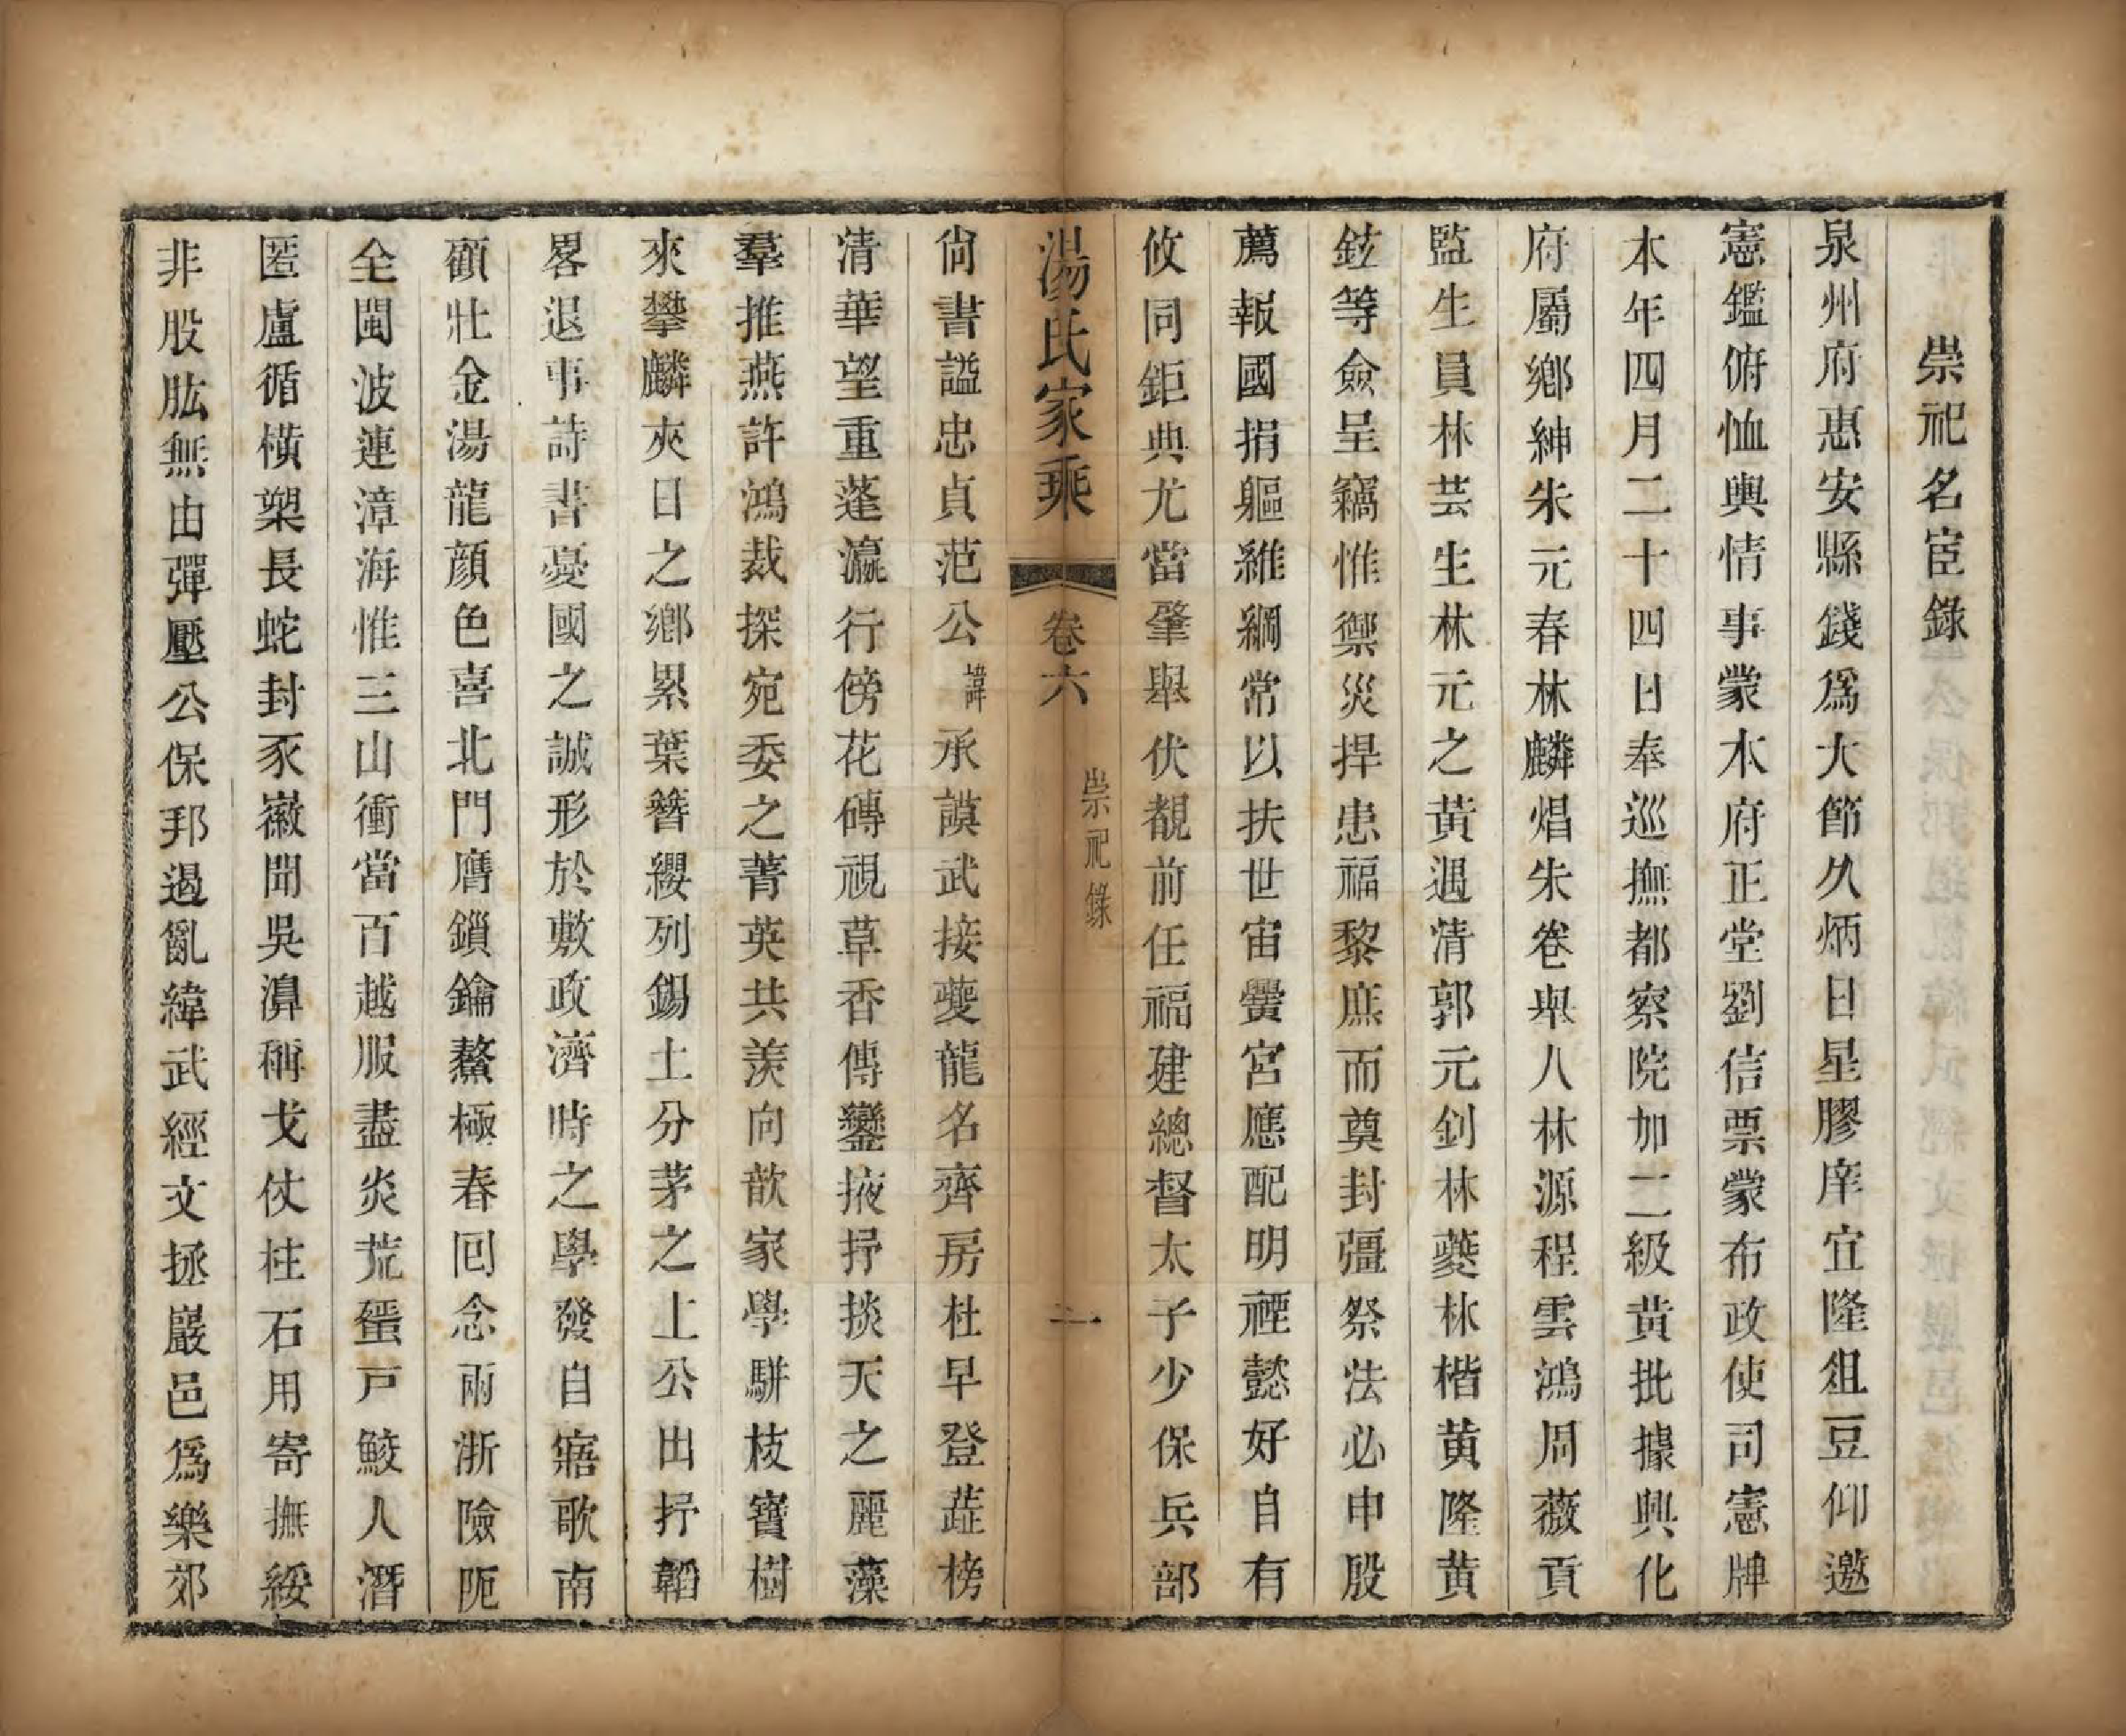 崇祀名宦錄
泉州府惠安縣錢爲大節久炳日星膠庠宜隆俎豆仰邀
憲鑑俯恤輿情事蒙本府正堂劉信票蒙布政使司憲牌
本年四月二十四日奉巡撫都察院加二級黃批據興化
府屬鄉紳朱元春林麟焻朱卷舉人林源程雲鴻周薇貢
監生員林芸生林元之黃遇清郭元釗林蘷林楷黃隆黃
鉉等僉呈竊惟禦災捍患福黎庶而奠封疆祭法必申殷
薦報國捐軀維綱常以扶世宙黌宮應配明禋懿好自有
攸同鉅典尤當肇舉伏覩前任福建總督太子少保兵部
湯氏家乘 卷六 崇祀錄 二
尙書謚忠貞范公諱承謨武接夔龍名齊房杜早登蕋榜
淸華望重蓬瀛行傍花磚視草香傳鑾掖抒掞天之麗藻
羣推燕許鴻裁探宛委之菁英共羡向歆家學駢枝寶樹
來攀麟夾日之鄉累葉簪纓列錫土分茅之上公出抒韜
畧退事詩書憂國之誠形於敷政濟時之學發自寤歌南
顧壯金湯龍顔色喜北門膺鎖鑰鰲極春回念兩浙險阨
全閩波連漳海惟三山衝當百越服盡炎荒蜑戸鮫人潛
匿盧循橫槊長蛇封豕徽聞吳濞稱戈仗柱石用寄撫綏
非股肱無由彈壓公保邦遏亂緯武經文拯巖邑爲樂郊